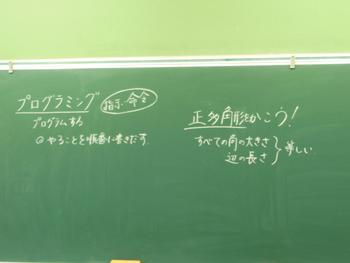 プログラミング
指示・命令
プログラムする
◎やることを順番に書きだす
正多角形をかこう!
すべての角の大きさ
辺の長さ
等しい